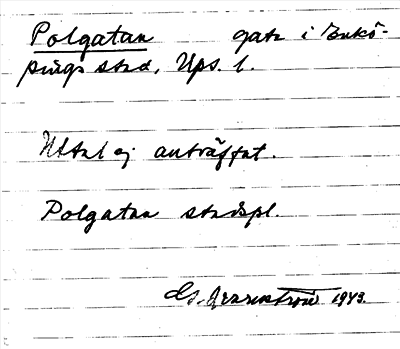 Polgatan gata i Enkö-
pings stad, Ups. l.
Uttal ej anträffat.
Polgatan stadspl.
1943.